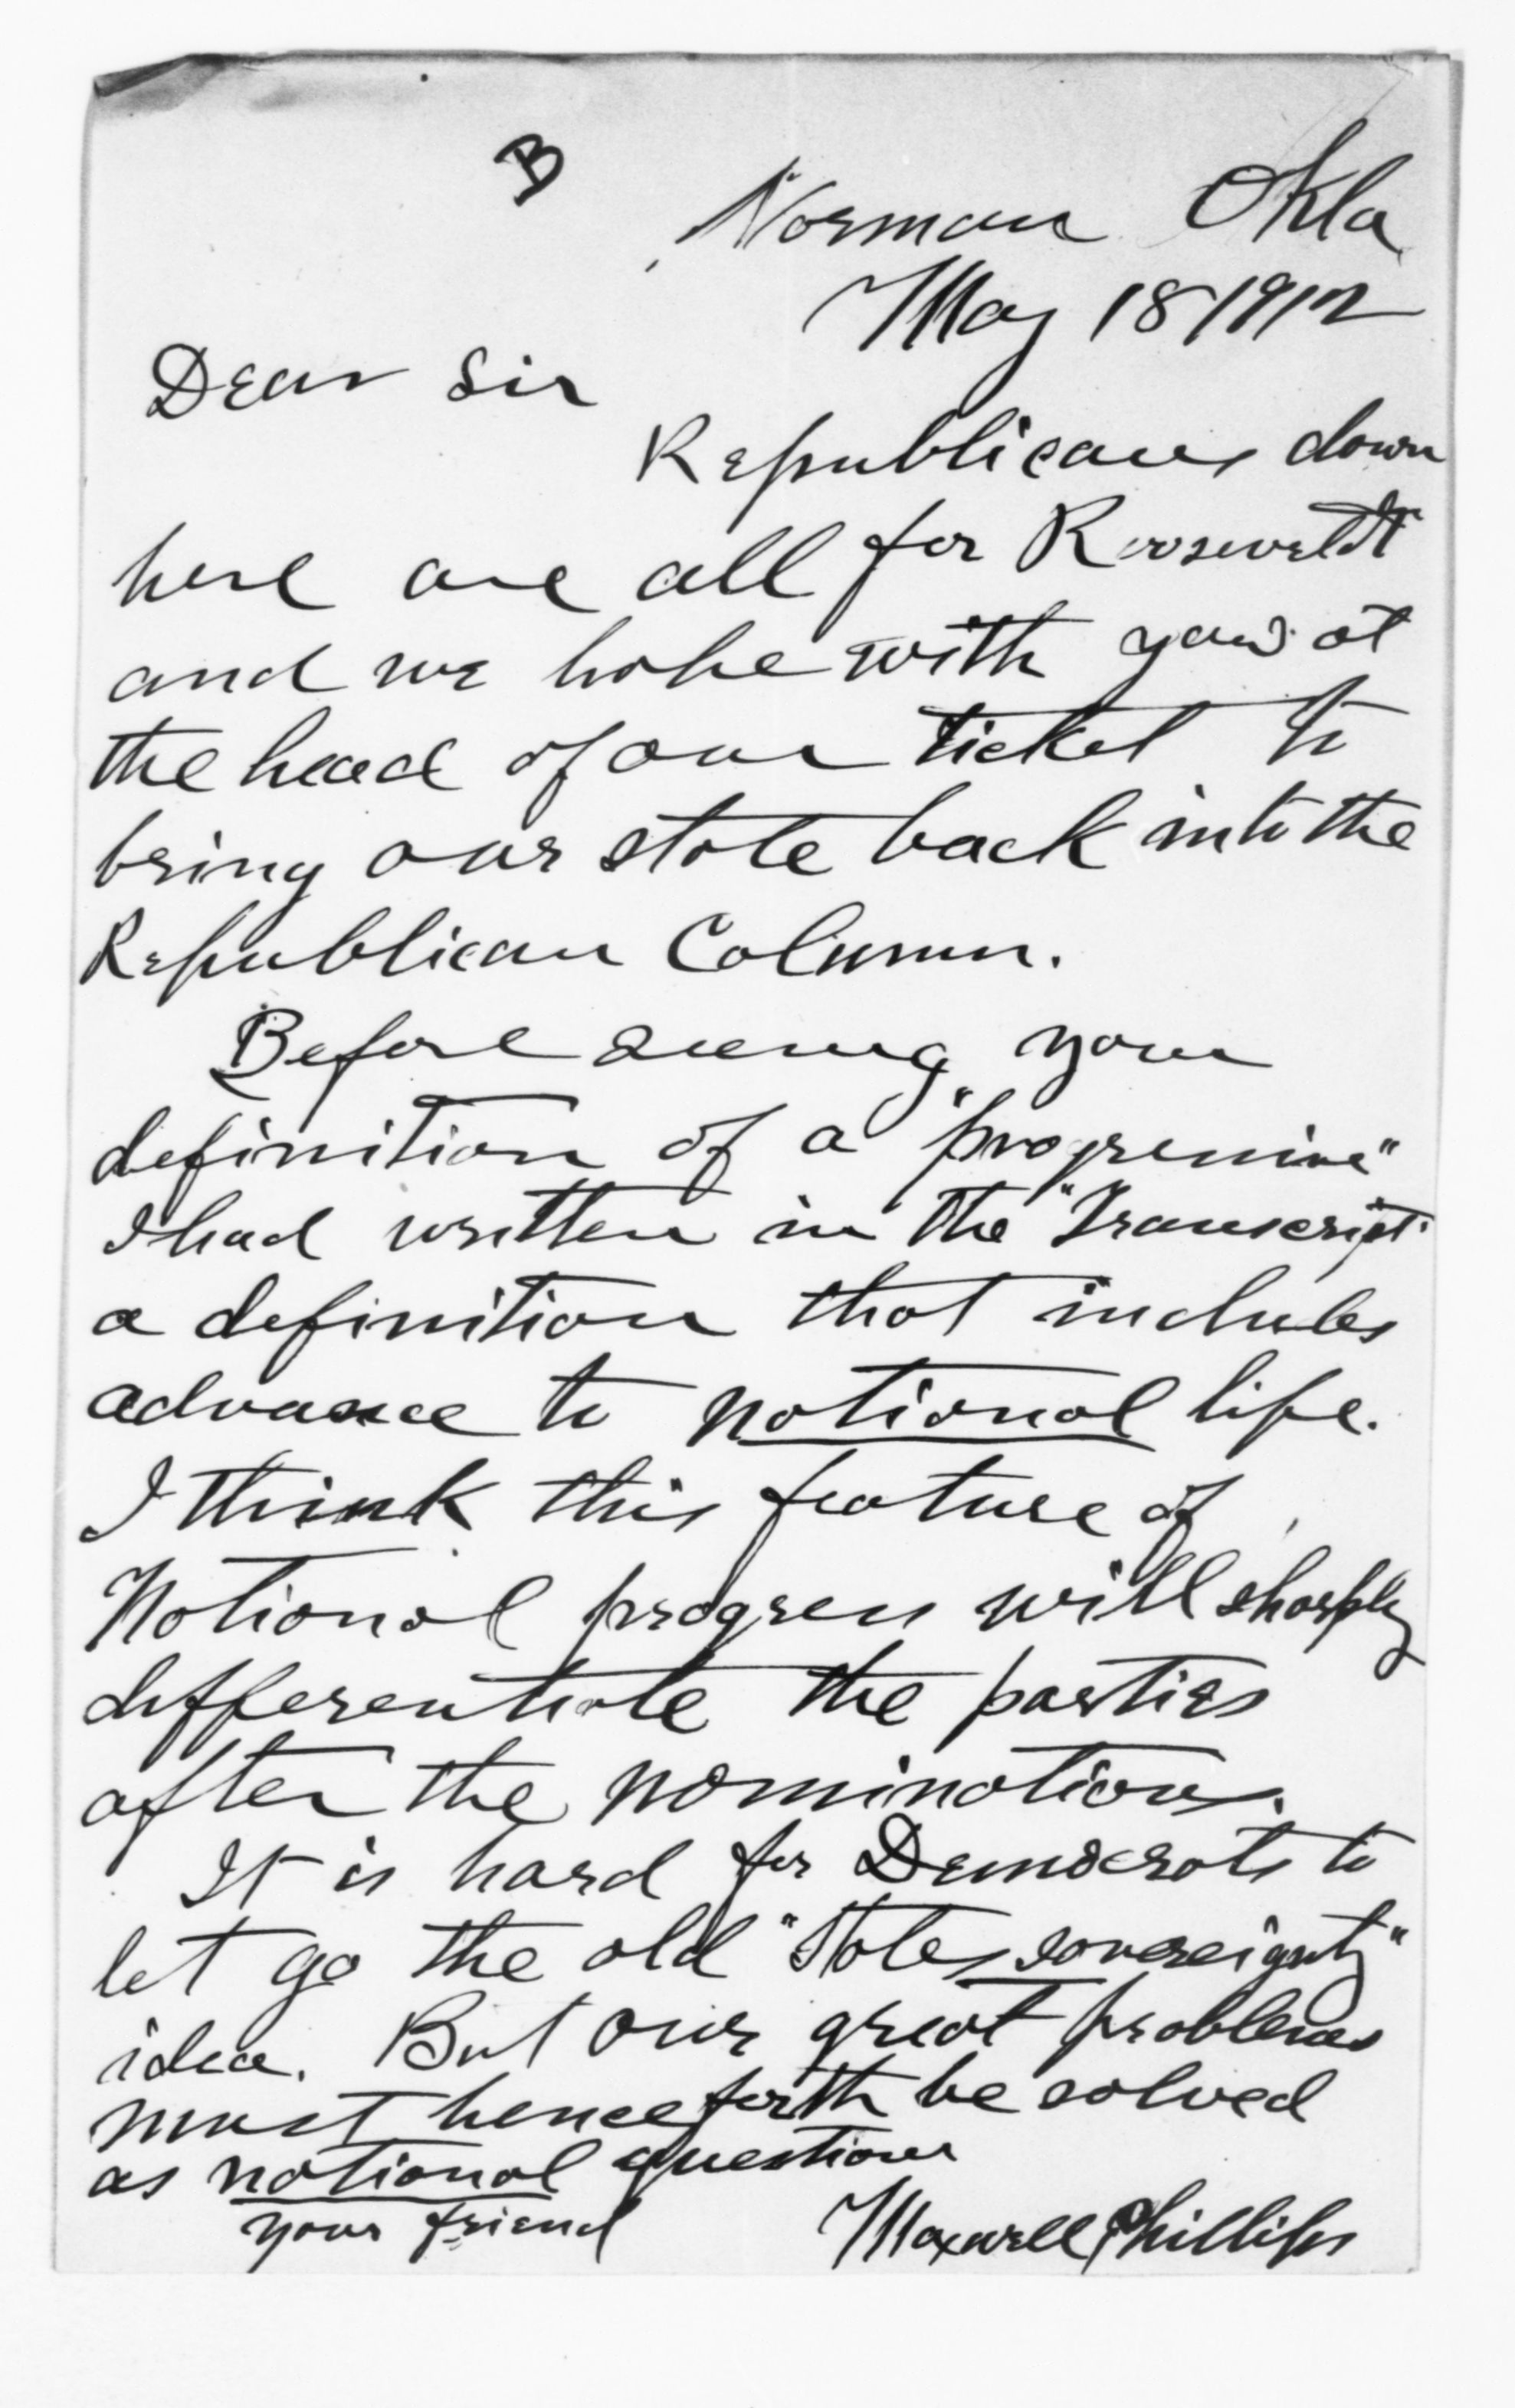 B
Norman Okla
May 18 1912
Dear Sir
Republicans down
here are all for Roosevelt
and we hope with you at
the head of our ticket to
bring our state back into the
Republican Column.
Before seeing your
definition of a "progressive"
I had written in the "Transcript"
a definition that includes
advance to national life.
I think this feature of
National progress will sharply
differentiate the parties
after the nominations.
It is hard for Democrats to
let go the old "States sovereignty"
idea. But our great problems
must henceforth be solved
as national questions
your friend Maxwell Phillips